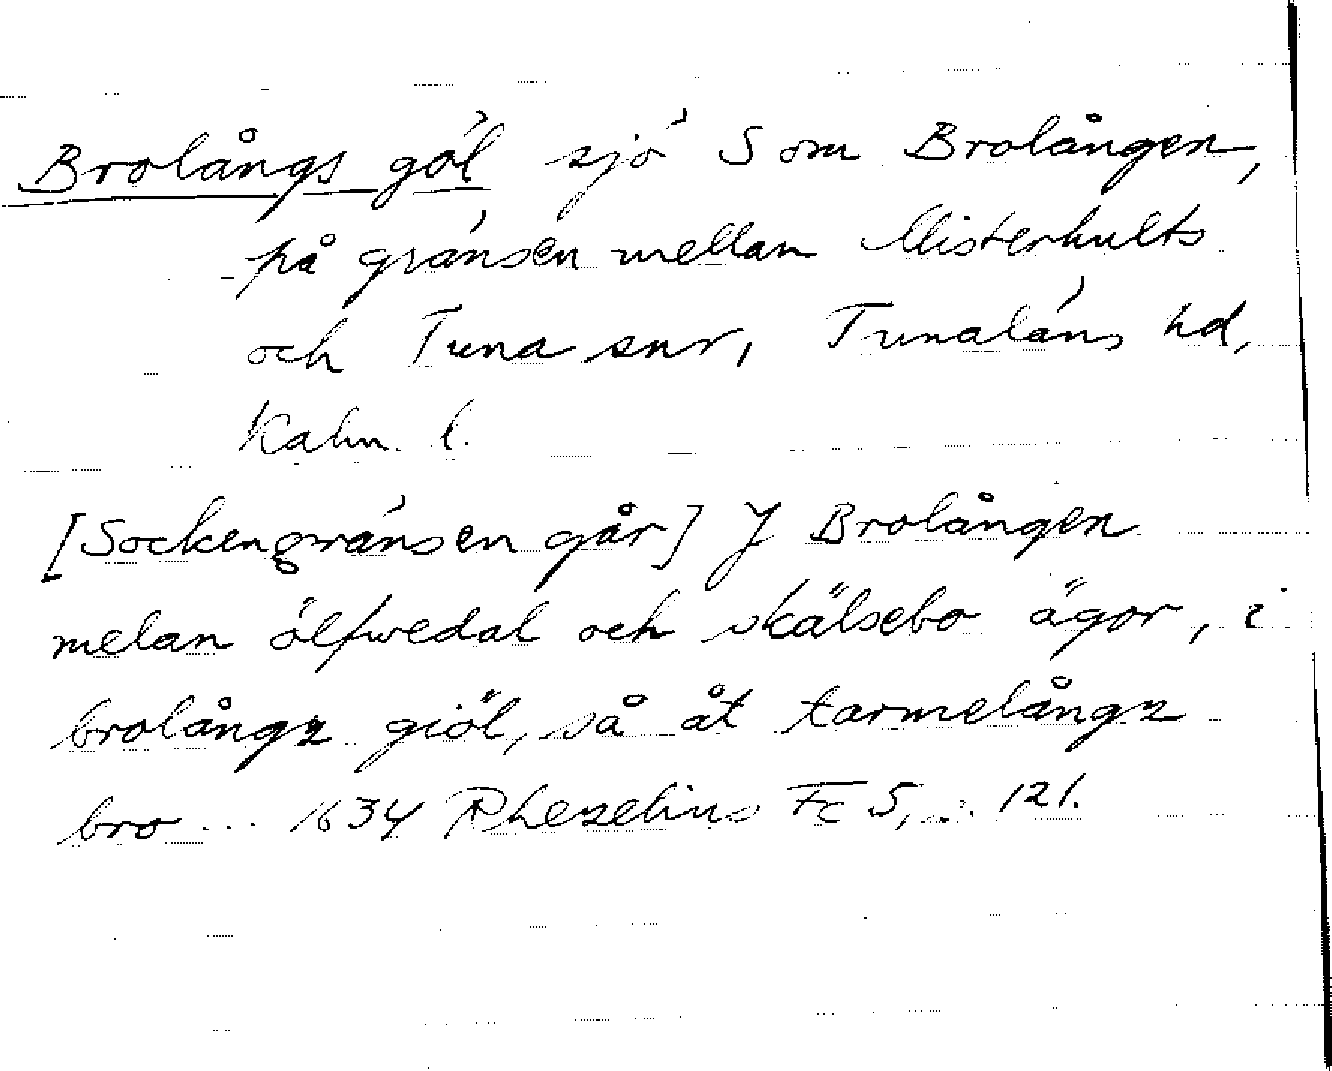 Brolångs göl sjö S om Brolången,
på gränsen mellan Misterhults
och Tuna snr, Tunaläns hd,
Kalm. l.
[Sockengränsen går] J Brolången
melan ölfwedal och skälsebo ägor, i
brolångz giöl, så åt tarmelångz
bro ... 1634 Rhezelius Fc 5, s. 121.